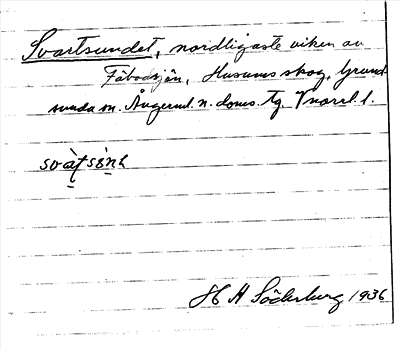 Svartsundet, nordligaste viken av
Fäbodsjön, Husums skog, Grund
sunda sn. Ångerml. n. doms. tg. Vnorrl. l.
H A Söderberg 1936